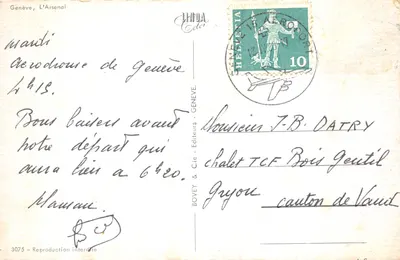 Genève, L'Arsenal
mardi
Aerodrome de Genève
4h15.
Bons baisers avant
notre départ qui
aura lieu à 6h20.
Maman
BOVEY & Cie - Editeurs - GENEVE
HELVETIA
10
GENÈVE AÉROPORT
Monsieur J-B. DATRY
chalet TCF Bois Gentil
Gryon
canton de Vaud
5075 - Reproduction interdite